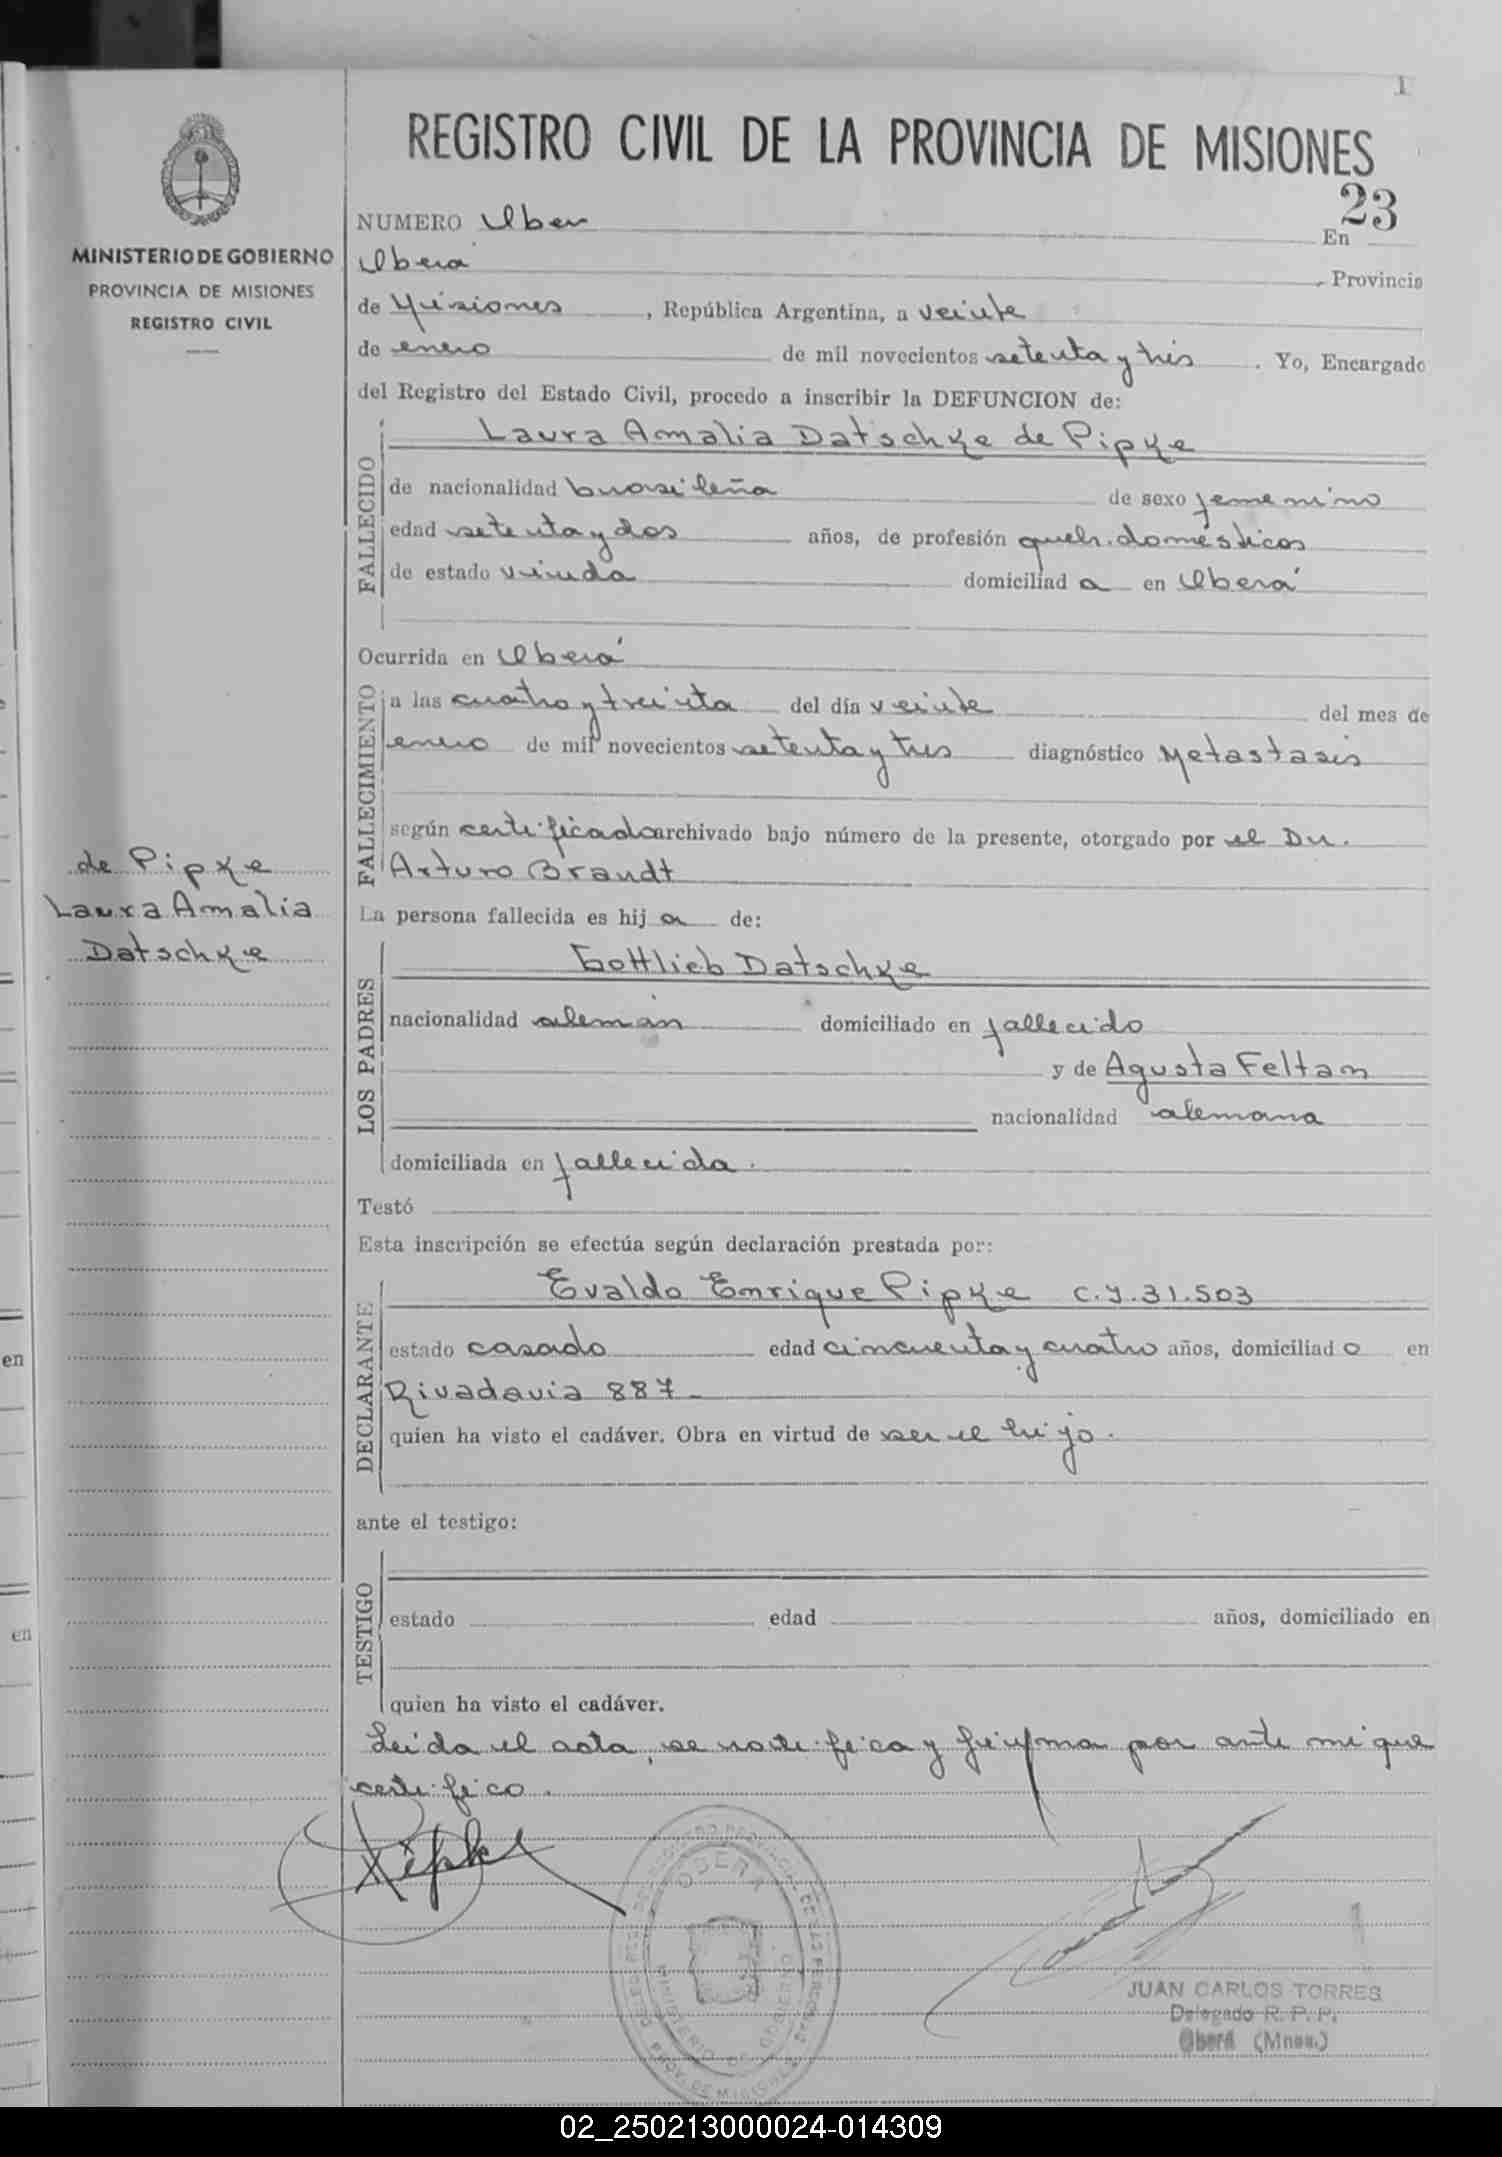 1
REGISTRO CIVIL DE LA PROVINCIA DE MISIONES
23
MINISTERIO DE GOBIERNO
PROVINCIA DE MISIONES
REGISTRO CIVIL
NUMERO En
Oberá, Provincia
de Misiones, República Argentina, a veinte
de enero de mil novecientos setenta y tres. Yo, Encargado
del Registro del Estado Civil, procedo a inscribir la DEFUNCION de:
FALLECIDO
Laura Amalia Datschke de Pipke
de nacionalidad brasileña de sexo femenino
edad setenta y dos años, de profesión queh. domésticos
de estado viuda domiciliad a en Oberá
Ocurrida en Oberá
FALLECIMIENTO
a las cuatro y treinta del día veinte del mes de
enero de mil novecientos setenta y tres diagnóstico Metastasis
según certificado archivado bajo número de la presente, otorgado por el Dr.
Arturo Brandt
de Pipke
Laura Amalia
Datschke
La persona fallecida es hij a de:
LOS PADRES
Gottlieb Datschke
nacionalidad alemán domiciliado en fallecido
y de Agusta Feltam
nacionalidad alemana
domiciliada en fallecida.
Testó
Esta inscripción se efectúa según declaración prestada por:
DECLARANTE
Evaldo Enrique Pipke C.I.31.503
estado casado edad cincuenta y cuatro años, domiciliad o en
Rivadavia 887
quien ha visto el cadáver. Obra en virtud de ser el hijo.
ante el testigo:
TESTIGO
estado edad años, domiciliado en
quien ha visto el cadáver.
Leida el acta, se ratifica y firma por ante mi que
certifico.
Pipke
OBERA
MINISTERIO DE GOBIERNO
PROV. DE MISIONES
JUAN CARLOS TORRES
Delegado R. P. P.
Oberá (Mnes.)
en
en
02_250213000024-014309